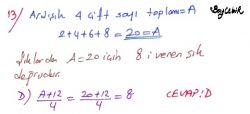 13) Ardışık 4 çift sayı toplamı=A
2+4+6+8=20=A
Şıklardan A=20 için 8 i veren şık
doğrudur.
D) A+12/4 = 20+12/4 = 8 CEVAP:D